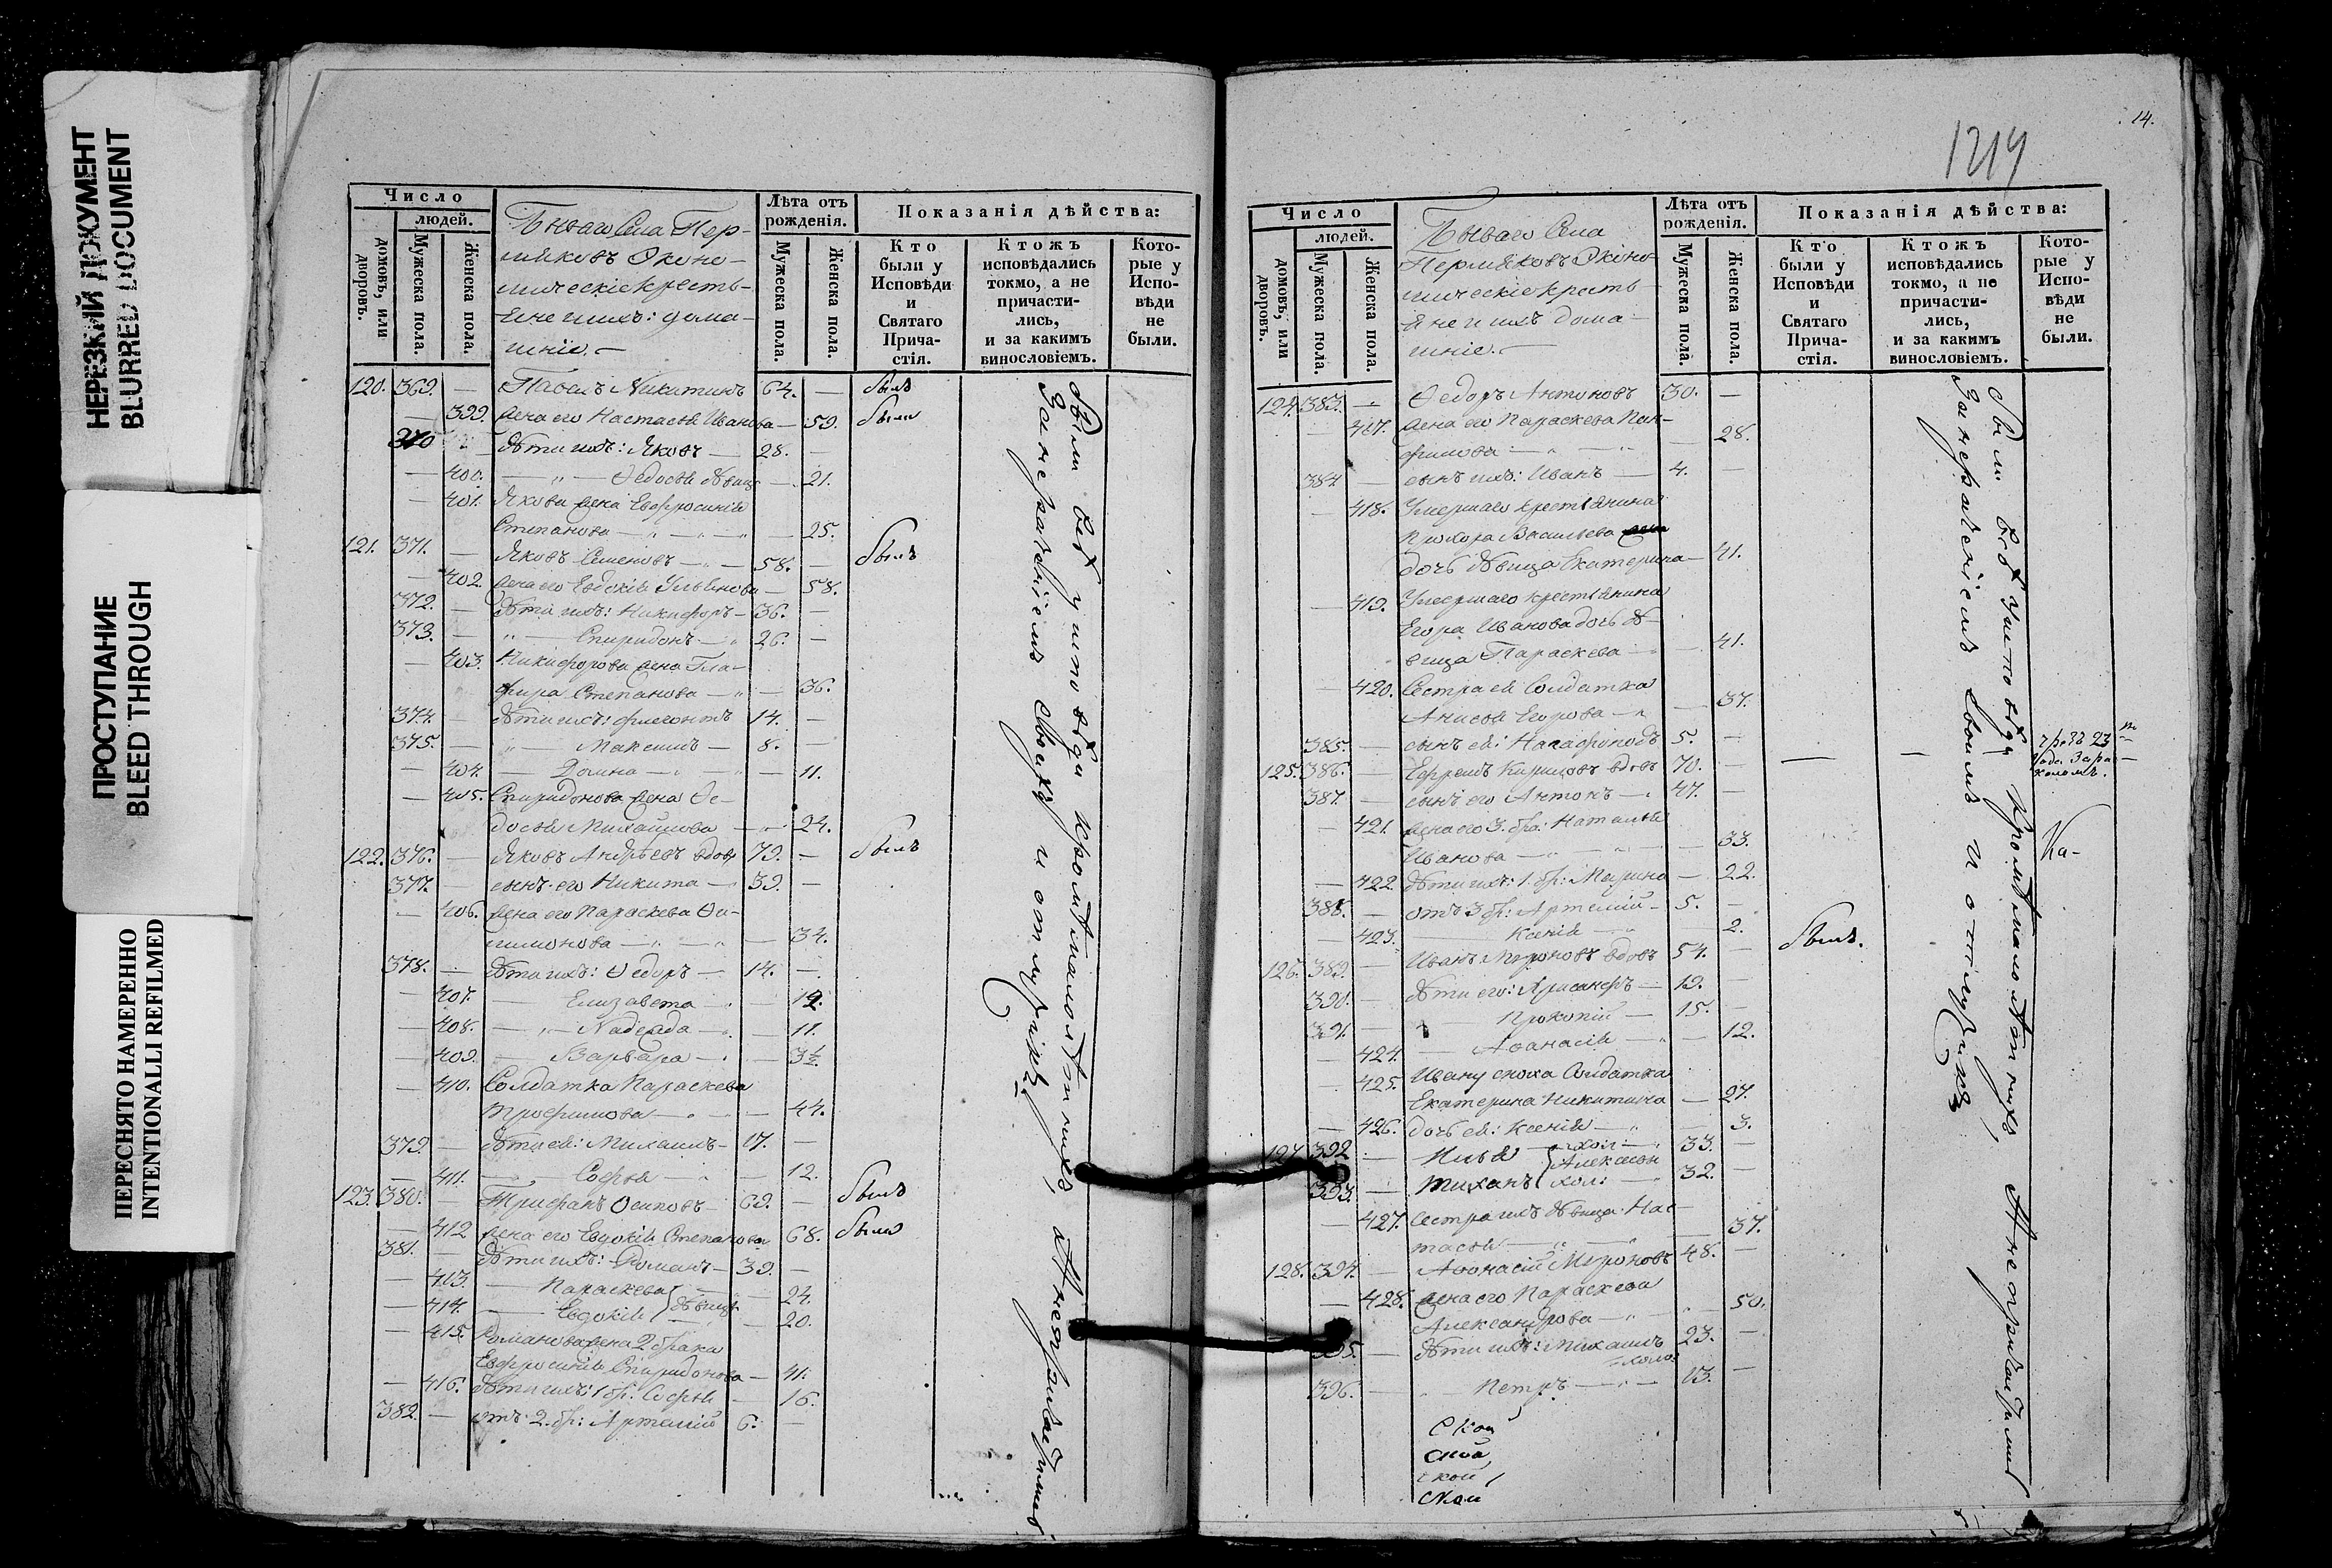 НЕРЕЗКИЙ ДОКУМЕНТ
BLURRED DOCUMENT
ПРОСТУПАНИЕ
BLEED THROUGH
ПЕРЕСНЯТО НАМЕРЕННО
INTENTIONALLI REFILMED
Число
людей.
домовъ, или дворовъ.
Мужеска пола.
Женска пола.
Бываго Села Пер-
мяковъ Эконо-
мическіе кресть-
яне и ихъ: дома-
шніе. —
Лѣта отъ рожденія.
Мужеска пола.
Женска пола.
Показанія дѣйства:
Кто были у Исповѣди и Святаго Прича-стія.
Ктожъ исповѣдались токмо, а не причасти-лись, и за какимъ винословіемъ.
Кото-рые у Испо-вѣди не были.
120. 369. — Никитинъ 64. — былъ
— 399. жена его Настасья Иванова — 59. была
370 дѣти ихъ: Яковъ — 28. —
— 400. — Ѳедосья дѣвица — 21.
— 401. Якова жена Евфросинія
Степанова — 25.
121. 371. — Яковъ Семеновъ — 58. — былъ
— 402. жена его Евдокія Ульянова — 58.
372. — дѣти ихъ: Никифоръ — 36. —
373. — Спиридонъ — 26. —
— 403. Никифорова жена Гла-
фира Степанова — 36.
374. — дѣти ихъ: Флегонтъ 14. —
375. — Максимъ — 8. —
— 404. — Домна — 11.
— 405. Спиридонова жена Ѳе-
досья Михайлова — 24.
122. 376. — Яковъ Андреевъ вдовъ 79. — былъ
377. — сынъ его Никита — 39. —
— 406. жена его Параскева Фи-
лимонова — 34.
378. — дѣти ихъ: Ѳедоръ — 14. —
— 407. — Елизавета — 12.
— 408. — Надежда — 11.
— 409. — Варвара — 3½
— 410. Солдатка Параскева
Трофимова — 44.
379. — дѣти ея: Михаилъ — 17. —
— 411. — Софья — 12.
123. 380. — Трифанъ Осиповъ — 69. — былъ
— 412 жена его Евдокія Степанова 68. была
381. — дѣти ихъ: Романъ — 39. —
— 413. — Параскева 24.
— 414. — Евдокія } дѣвицы 20.
— 415. Романова жена 2 брака
Евфросинія Спиридонова — 41.
— 416. дѣти ихъ: 1 бр: Софья — 16.
382. — отъ 2. бр: Артемій 6. —
были всѣ у исповѣди кромѣ малолѣтнихъ, а не причастились
за нераденіемъ своимъ и отлучкою
14.
1219
Число
людей.
домовъ, или дворовъ.
Мужеска пола.
Женска пола.
Бываго Села
Пермяковъ Эконо-
мическіе кресть-
яне и ихъ дома-
шніе. —
Лѣта отъ рожденія.
Мужеска пола.
Женска пола.
Показанія дѣйства:
Кто были у Исповѣди и Святаго Прича-стія.
Ктожъ исповѣдались токмо, а не причасти-лись, и за какимъ винословіемъ.
Кото-рые у Испо-вѣди не были.
124. 383. — Ѳедоръ Антоновъ 30. —
— 417. жена его Параскева Пан-
филова — 28.
384 — сынъ ихъ: Иванъ — 4. —
— 418. Умершаго крестьянина
Прохора Васильева
дочь дѣвица Екатерина — 41.
— 419. Умершаго крестьянина
Егора Иванова дочь дѣ-
вица Параскева — 41.
— 420. Сестра ея Солдатка
Анисья Егорова — 37.
385. — сынъ ея: 5. —
125. 386. — Ефремъ Кириловъ вдовъ 70. — — —
387. — сынъ его Антонъ — 47. —
— 421. жена его 3. бра: Наталья
Иванова — 33.
— 422. дѣти ихъ: 1. бр: Марина — 22.
388. — отъ 3 бр: Артемій — 5. —
— 423. Ксенія — 2.
126. 389. — Иванъ Мироновъ вдовъ 54. — былъ.
390. — дѣти его: — 19. —
391. — Прокопій — 15. —
— 424. — Афанасія — 12.
— 425. Ивану сноха Солдатка
Екатерина Никитина — 27.
— 426. дочь ея: Ксенія — 3.
127 392 — Илья — хол: 33. —
393. — Тихонъ } Алексѣевы хол: 32. —
— 427. Сестра ихъ дѣвица Нас-
тасья — 37.
128. 394. — Афонасій Мироновъ 48. —
— 428. жена его Параскева
Александрова — 50.
395. — дѣти ихъ: Михаилъ 23. —
холо:
396. — Петръ — 13. —
были всѣ у исповѣди кромѣ малолѣтнихъ, а не причастились
за нераденіемъ своимъ и отлучкою
Ка-